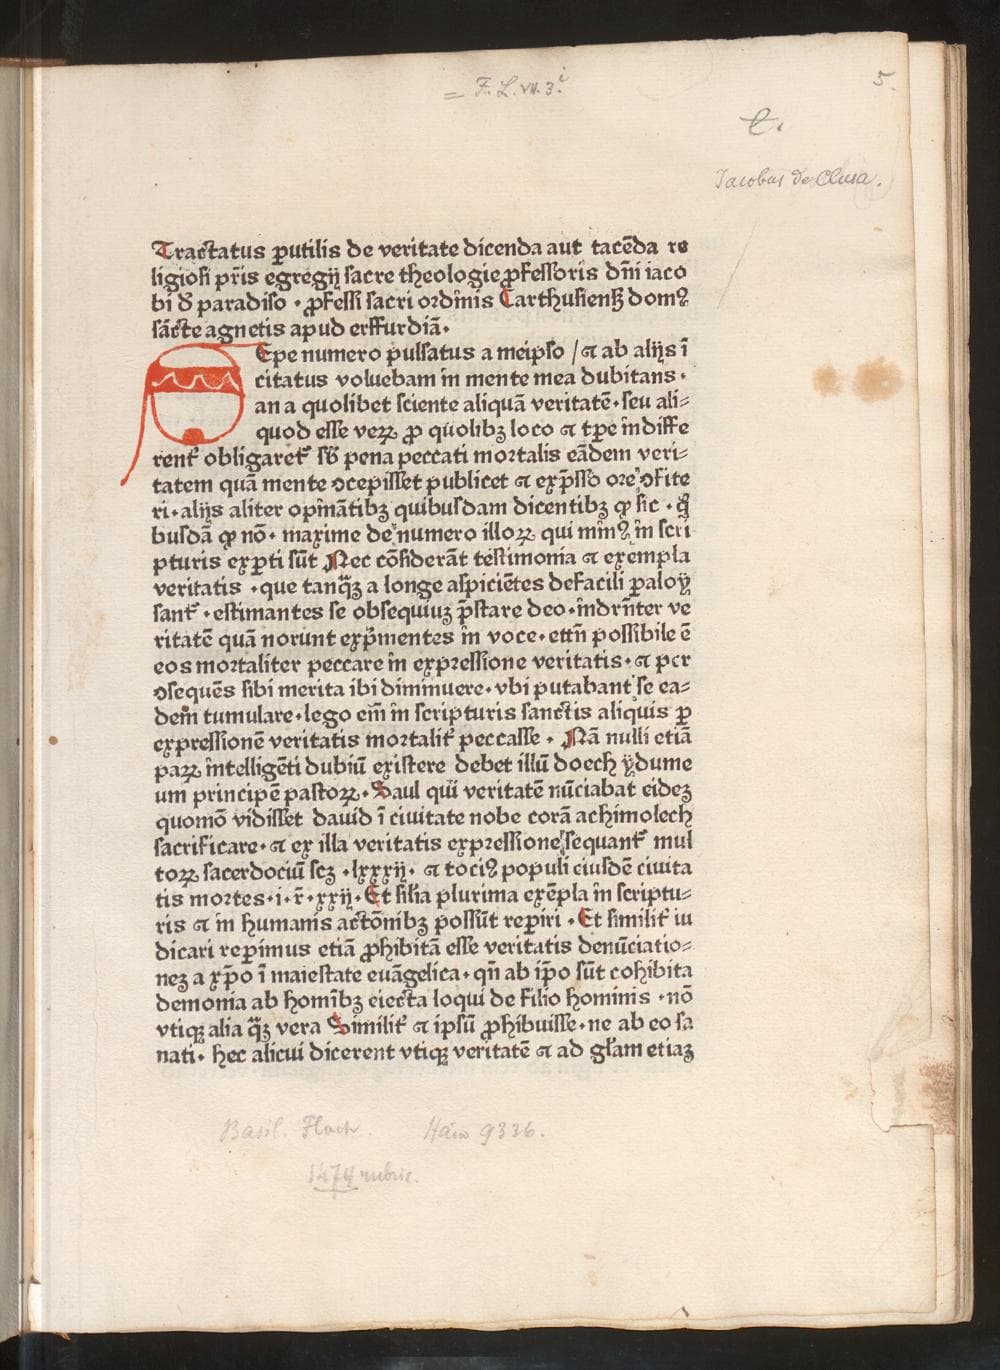 = F. L. VII. 3.
5.
Jacobus de Clusa.
Tractatus ꝑutilis de veritate dicenda aut tacēda re
ligiosi pr̄is egregij sacre theologie ꝓfessoris dn̄i iaco
bi d̄ paradiso · ꝓfessi sacri ordīnis Carthusienß domꝰ
sācte agnetis apud erffurdiā·
Epe numero pulsatus a meipso / ⁊ ab alijs ī
citatus voluebam in mente mea dubitans·
an a quolibet sciente aliquā veritatē·seu ali-
quod esse veꝝ ꝓ quolibꝫ loco ⁊ tꝑe indiffe
renť obligareť sb̄ pena peccati mortalis eādem veri-
tatem quā mente ꝯcepisset publicet ⁊ exp̄sso ore ꝯfite
ri·alijs aliter opīnātibꝫ quibusdam dicentibꝫ ꝙ sic · q̄
busdā ꝙ nō· maxime de numero illoꝝ qui minꝰ in scri
pturis exꝑti sūt Nec cōsiderāt testimonia ⁊ exempla
veritatis ·que tanq̄ꝫ a longe aspiciētes defacili ꝑaloÿ
sanť ·estimantes se obsequiuꝫ p̄stare deo·indr̄nter ve
ritatē quā norunt exp̄mentes in voce·ettn̄ possibile ē
eos mortaliter peccare in expressione veritatis·⁊ per
ꝯsequēs sibi merita ibi diminuere·vbi putabant se ea-
dem tumulare·lego em̄ in scripturis sanctis aliquis ꝑ
expressionē veritatis mortaliť peccasse · Nā nulli etiā
paꝝ intelligēti dubiū existere debet illū doech ÿdume
um principē pastoꝝ·Saul qui veritatē nūciabat eideꝫ
quomō vidisset dauid ī ciuitate nobe corā achimolech
sacrificare·⁊ ex illa veritatis expressione sequanť mul
toꝝ sacerdociū scꝫ ·lxxxij· ⁊ tociꝰ populi eiusdē ciuita
tis mortes·i·r̄·xxij·Et silīa plurima exēpla in scriptu-
ris ⁊ in humanis actōnibꝫ possūt reꝑiri ·Et similiť iu
dicari reꝑimus etiā ꝓhibitā esse veritatis denūciatio-
neꝫ a xp̄o ī maiestate euāgelica·qn̄ ab ip̄o sūt cohibita
demonia ab homībꝫ eiecta loqui de filio hominis ·nō
vtiqꝫ alia q̄ꝫ vera Similiť ⁊ ipsū ꝓhibuisse·ne ab eo sa
nati· hec alicui dicerent vtiqꝫ veritatē ⁊ ad gl̄am etiaꝫ
Basil. Flach. Hain 9336.
1474 rubric.